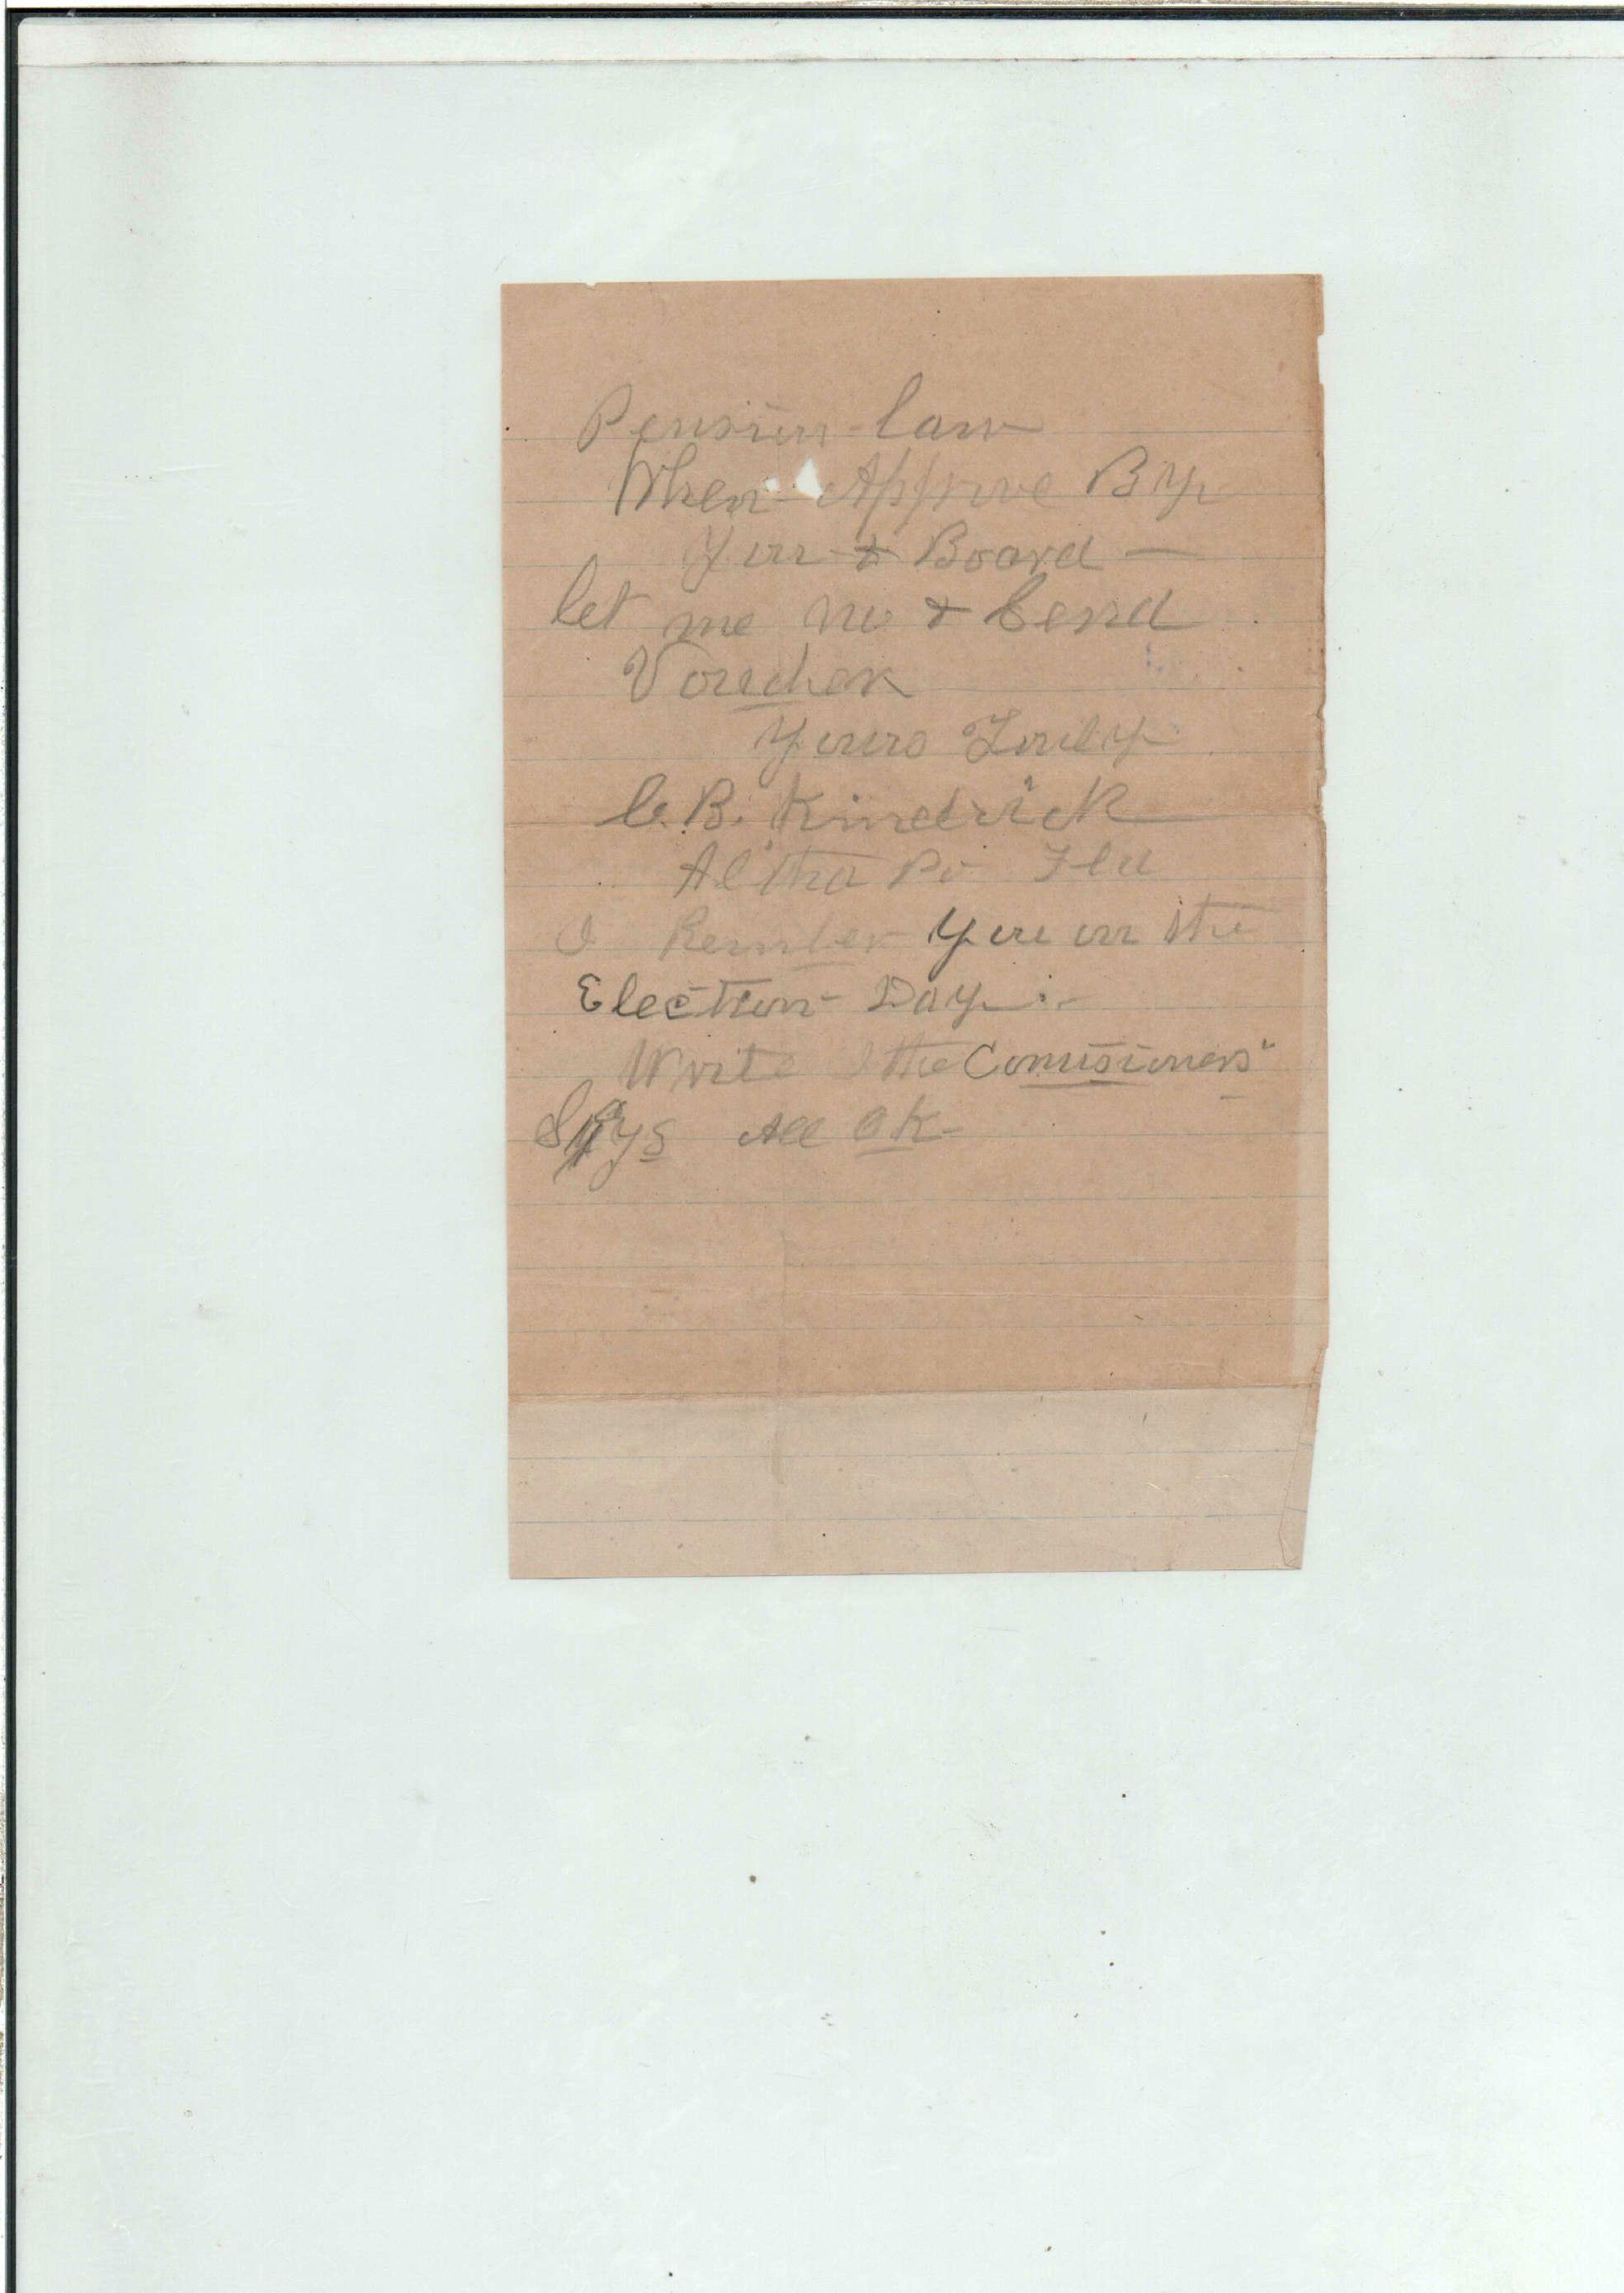 Pension law
When Approve By
You & Board —
let me no & Send
Voucher
Yours Truly
C. B. Kindrick
Altha Po Fla
I Rember you on the
Election Day
Write the Comissioners
Says All OK